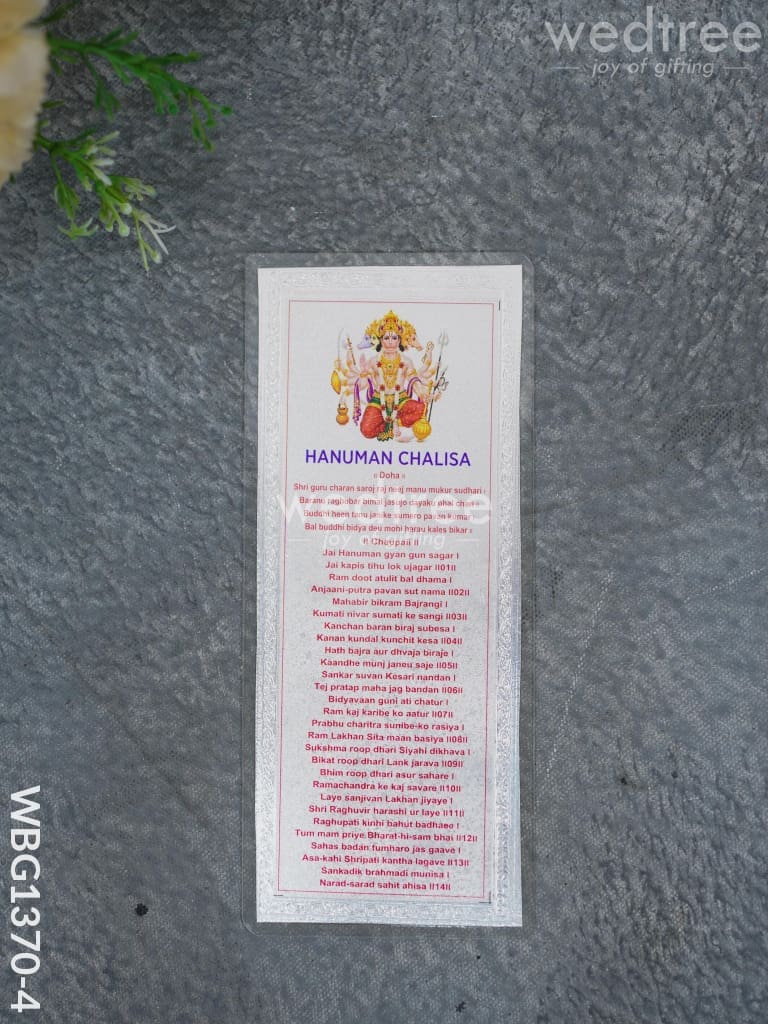 wedtree
joy of gifting
HANUMAN CHALISA
॥ Doha ॥
Shri guru charan saroj raj neaj manu mukur sudhari
Barano raghobar bimal jasujo dayaku phal chari
Buddhi heen tanu janike sumero pavan kumar
Bal buddhi bidya deu mohi harau kales bikar॥
wedtree
joy of gifting
II Chaupaii II
Jai Hanuman gyan gun sagar I
Jai kapis tihu lok ujagar II01II
Ram doot atulit bal dhama I
Anjaani-putra pavan sut nama II02II
Mahabir bikram Bajrangi I
Kumati nivar sumati ke sangi II03II
Kanchan baran biraj subesa I
Kanan kundal kunchit kesa II04II
Hath bajra aur dhvaja biraje I
Kaandhe munj janeu saje II05II
Sankar suvan Kesari nandan I
Tej pratap maha jag bandan II06II
Bidyavaan guni ati chatur I
Ram kaj karibe ko aatur II07II
Prabhu charitra sunibe-ko rasiya I
Ram Lakhan Sita maan basiya II08II
Sukshma roop dhari Siyahi dikhava I
Bikat roop dhari Lank jarava II09II
Bhim roop dhari asur sahare I
Ramachandra ke kaj savare II10II
Laye sanjivan Lakhan jiyaye I
Shri Raghuvir harashi ur laye II11II
Raghupati kinhi bahut badhaee I
Tum mam priye Bharat-hi-sam bhai II12II
Sahas badan tumharo jas gaave I
Asa-kahi Shripati kantha lagave II13II
Sankadik brahmadi munisa I
Narad-sarad sahit ahisa II14II
WBG1370-4